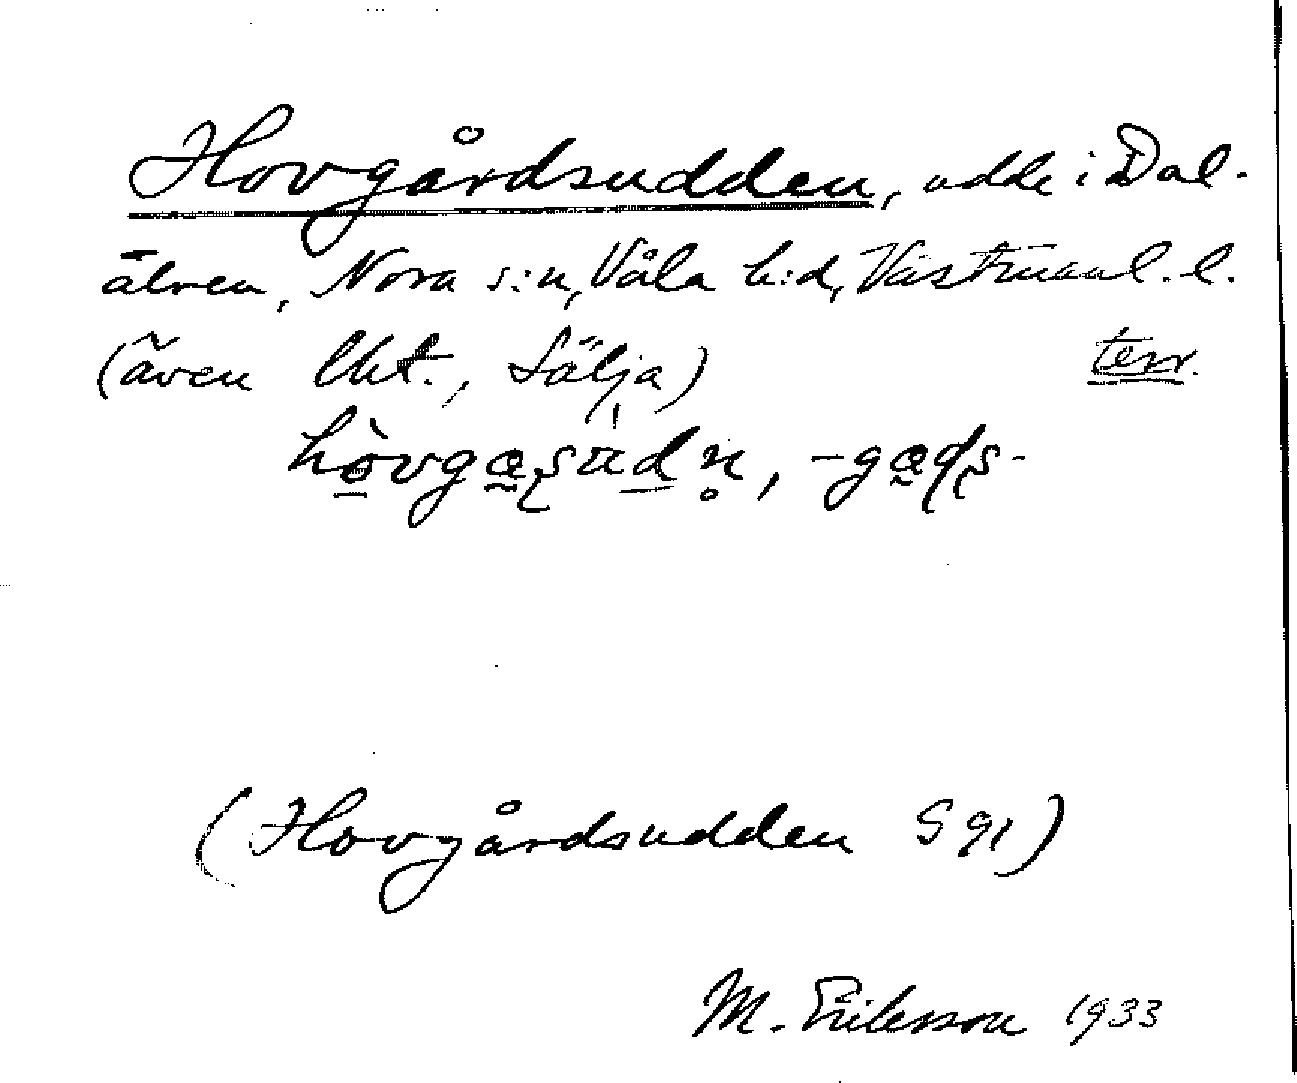 Hovgårdsudden, udde i Dal-
älven, Nora s:n, Våla h:d, Västmanl. l.
(även Ukt., Sälja) terr.
hòvgæṣùdn̥, -gæḍṣ-
(Hovgårdsudden S 91)
M. Eriksson 1933